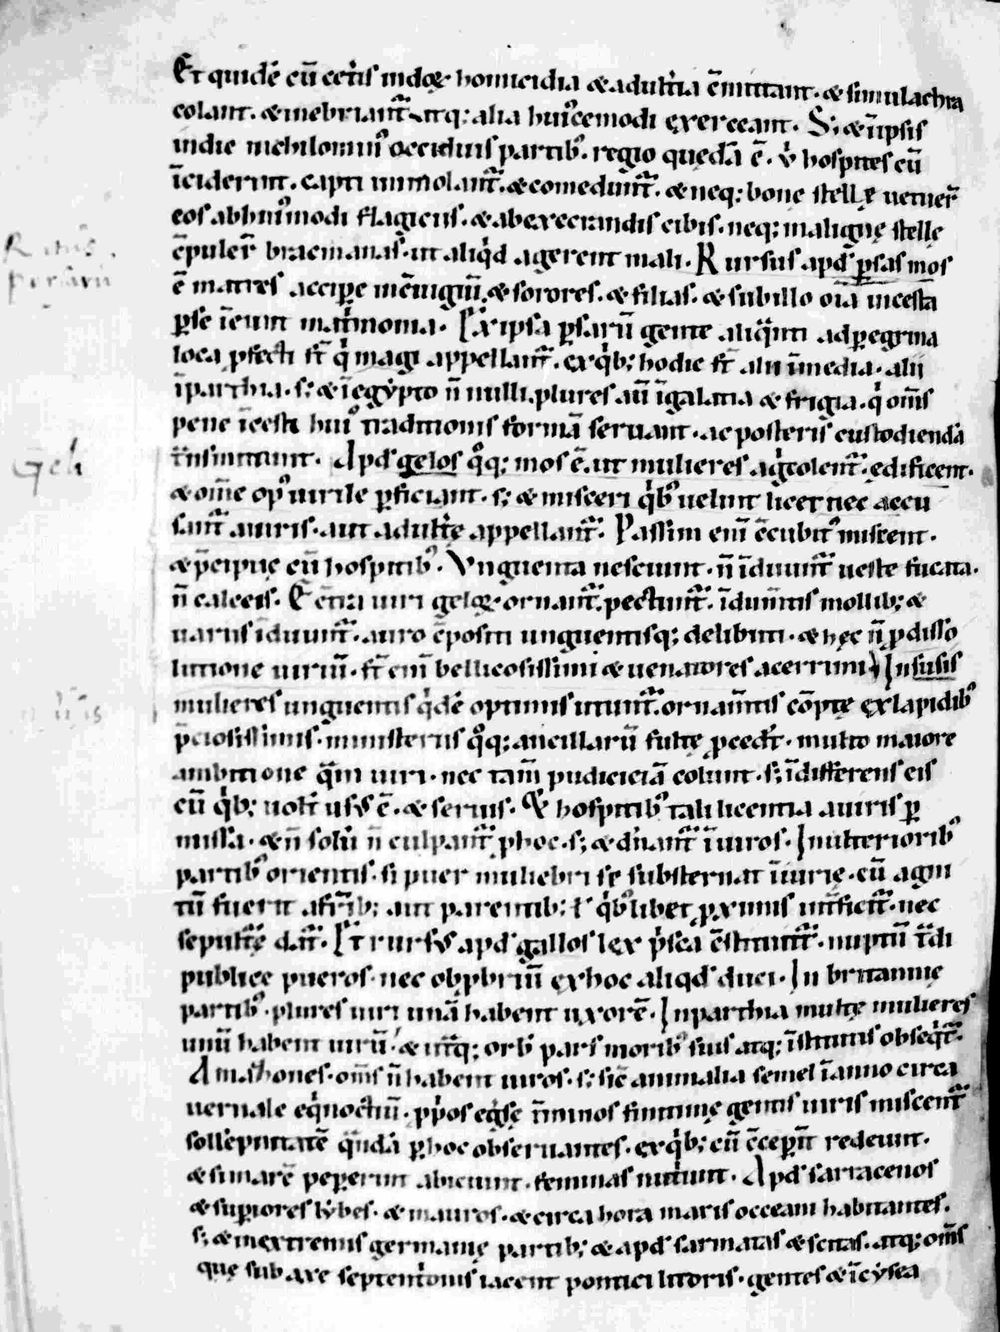 Et quidē cū cetĩs indoꝝ homicidia & adultia cōmittant. & simulachra
colant. & inebriant᷑ atq; alia huiꝰcemodi exerceant. S; & ĩ ipsis
indie nichilominꝰ occiduis partibꝰ. regio quedā ē. ů hospites cū
ĩciderint. capti immolant᷑. & comedunt᷑. & neq; bone stellę uetuer̄
eos abhuiꝰmodi flagiciis. & abexecrandis cibis. neq; maligne stelle
cōpuler̄ bracmanas. ut aliqͥd agerent mali. Rursus apd ꝑsas mos
ē matres accipe in cōiugiū. & sorores. & filias. & subillo oīa incesta
ꝑse ĩeunt matͥmonia. Ex ipsa ꝑsarū gente aliqͣnti adꝑegrina
loca ꝓfecti st̄ qͥ magi appellant᷑. ex qͥb; hodie st̄ alii ĩmedia. alii
ĩparthia. s; & ĩegypto ñ nulli. plures aūt ĩgalatia & frigia. qͥ om̄s
pene ĩcesti huiꝰ traditionis formā seruant. ac posteris custodiendā
tͣnsmittunt. Apd gelos qͦq; mos ē. ut mulieres agͥcolent᷑. edificent.
& om̄e opꝰ uirile ꝑficiant. s; & misceri qͥbꝰ uelint licet nec accu
sant᷑ auiris. aut adultę appellant᷑. Passim enī cōcubitꝰ miscent.
& p̄cipue cū hospitibꝰ. Unguenta nesciunt. ñ ĩduunt᷑ ueste fucata.
ñ calceis. E cōtra uiri geloꝝ. ornant᷑. pectunt᷑. ĩdumtis mollib; &
uariis ĩduunt᷑. auro cōpositi unguentisq; delibuti. & hęc ñ ꝓdisso
lutione uiriū. st̄ enī bellicosissimi & uenatores acerrimi. In susis
mulieres unguentis qͥdē optimis utunt᷑. ornam̄tis cōptę ex lapidibꝰ
p̄ciosissimis. ministeriis qͦq; ancillarū fultę ꝓcedt᷑. multo maiore
ambitione qͣm uiri. nec tam̄ pudiciciā colunt. s; ĩdifferens eis
cū qͥb; uolt̄ usus ē. & seruis. & hospitibꝰ tali licentia auiris ꝑ
missa. & ñ solū ñ culpant᷑ ꝓhoc. s; & dn̄ant᷑ ĩuiros. In ulterioribꝰ
partibꝰ orientis. si puer muliebri se substernat ĩiurię. cū agni
tū fuerit afr̄ib; aut parentib; ł qͥbꝰlibet ꝓximis int̄ficit᷑. nec
sepultę dat᷑. Et rursus apd gallos lex pͥsca cōstituit. nuptū tͣdi
publice pueros. nec obꝓbriū exhoc aliqd duci. In britannię
partibꝰ. plures uiri unā habent uxorē. In parthia multę mulieres
unū habent uirū. & utͣq; orbͥ pars moribꝰ suis atq; ĩstitutis obseqͥt᷑.
Amazones. om̄s ñ habent uiros. s; sic̄ animalia semel ĩanno circa
uernale eqͥnoctiū. ꝓpos egͬse t̄minos finitimę gentis uiris miscent᷑
sollēpnitatē qͣndā ꝑhoc obseruantes. ex qͥb; cū cōcepīt redeunt.
& si marē peperint abiciunt. feminas nutͥunt. Apd sarracenos
& suꝑiores lybes. & mauros. & circa hora maris occeani habitantes.
s; & in extremis germanię partib; & apd sarmatas & scitas. atq; om̄s
que sub axe septentͥonis iacent pontici litoris. gentes & ĩ cysea
Geli